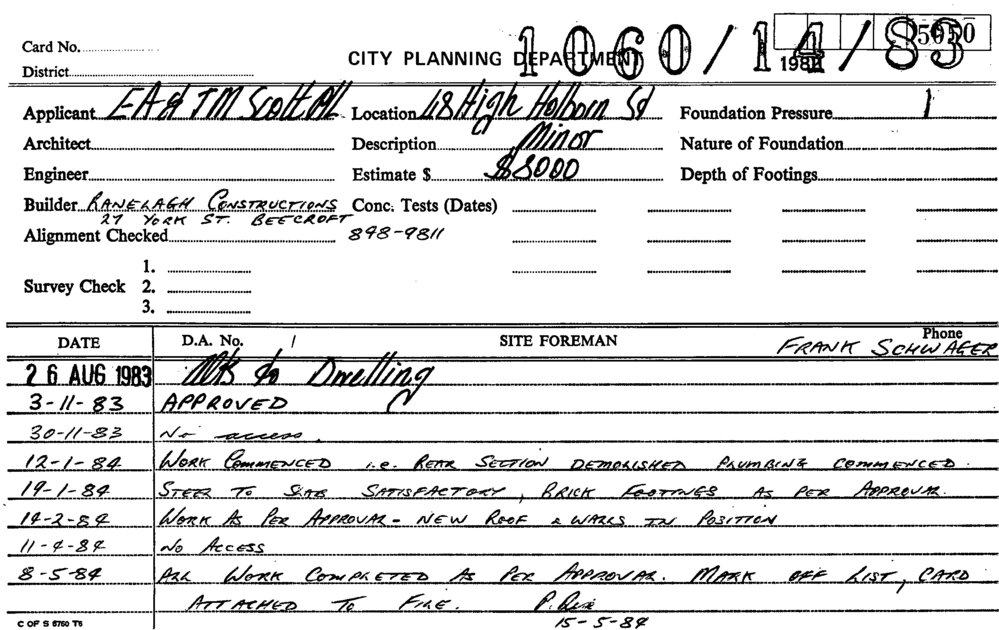 Card No. 5050
CITY PLANNING DEPARTMENT 1060/14/83
District
Applicant EA & JM Scott Location 48 High Holborn St Foundation Pressure
Architect Description Minor Nature of Foundation
Engineer Estimate $ $8000 Depth of Footings
Builder RANELAGH CONSTRUCTIONS Conc. Tests (Dates)
27 YORK ST. BEECROFT
Alignment Checked 848-9811
1.
Survey Check 2.
3.
DATE D.A. No. SITE FOREMAN Phone
FRANK SCHWAGER
26 AUG 1983 to Dwelling
3-11-83 APPROVED
30-11-83 No access.
12-1-84 WORK COMMENCED i.e. REAR SECTION DEMOLISHED PLUMBING COMMENCED.
19-1-84 STEEL TO SLAB SATISFACTORY, BRICK FOOTINGS AS PER APPROVAL.
14-2-84 WORK AS PER APPROVAL - NEW ROOF & WALLS IN POSITION
11-4-84 NO ACCESS
8-5-84 ALL WORK COMPLETED AS PER APPROVAL. MARK OFF LIST, CARD
ATTACHED TO FILE.
15-5-84
C OF S 6760 T6